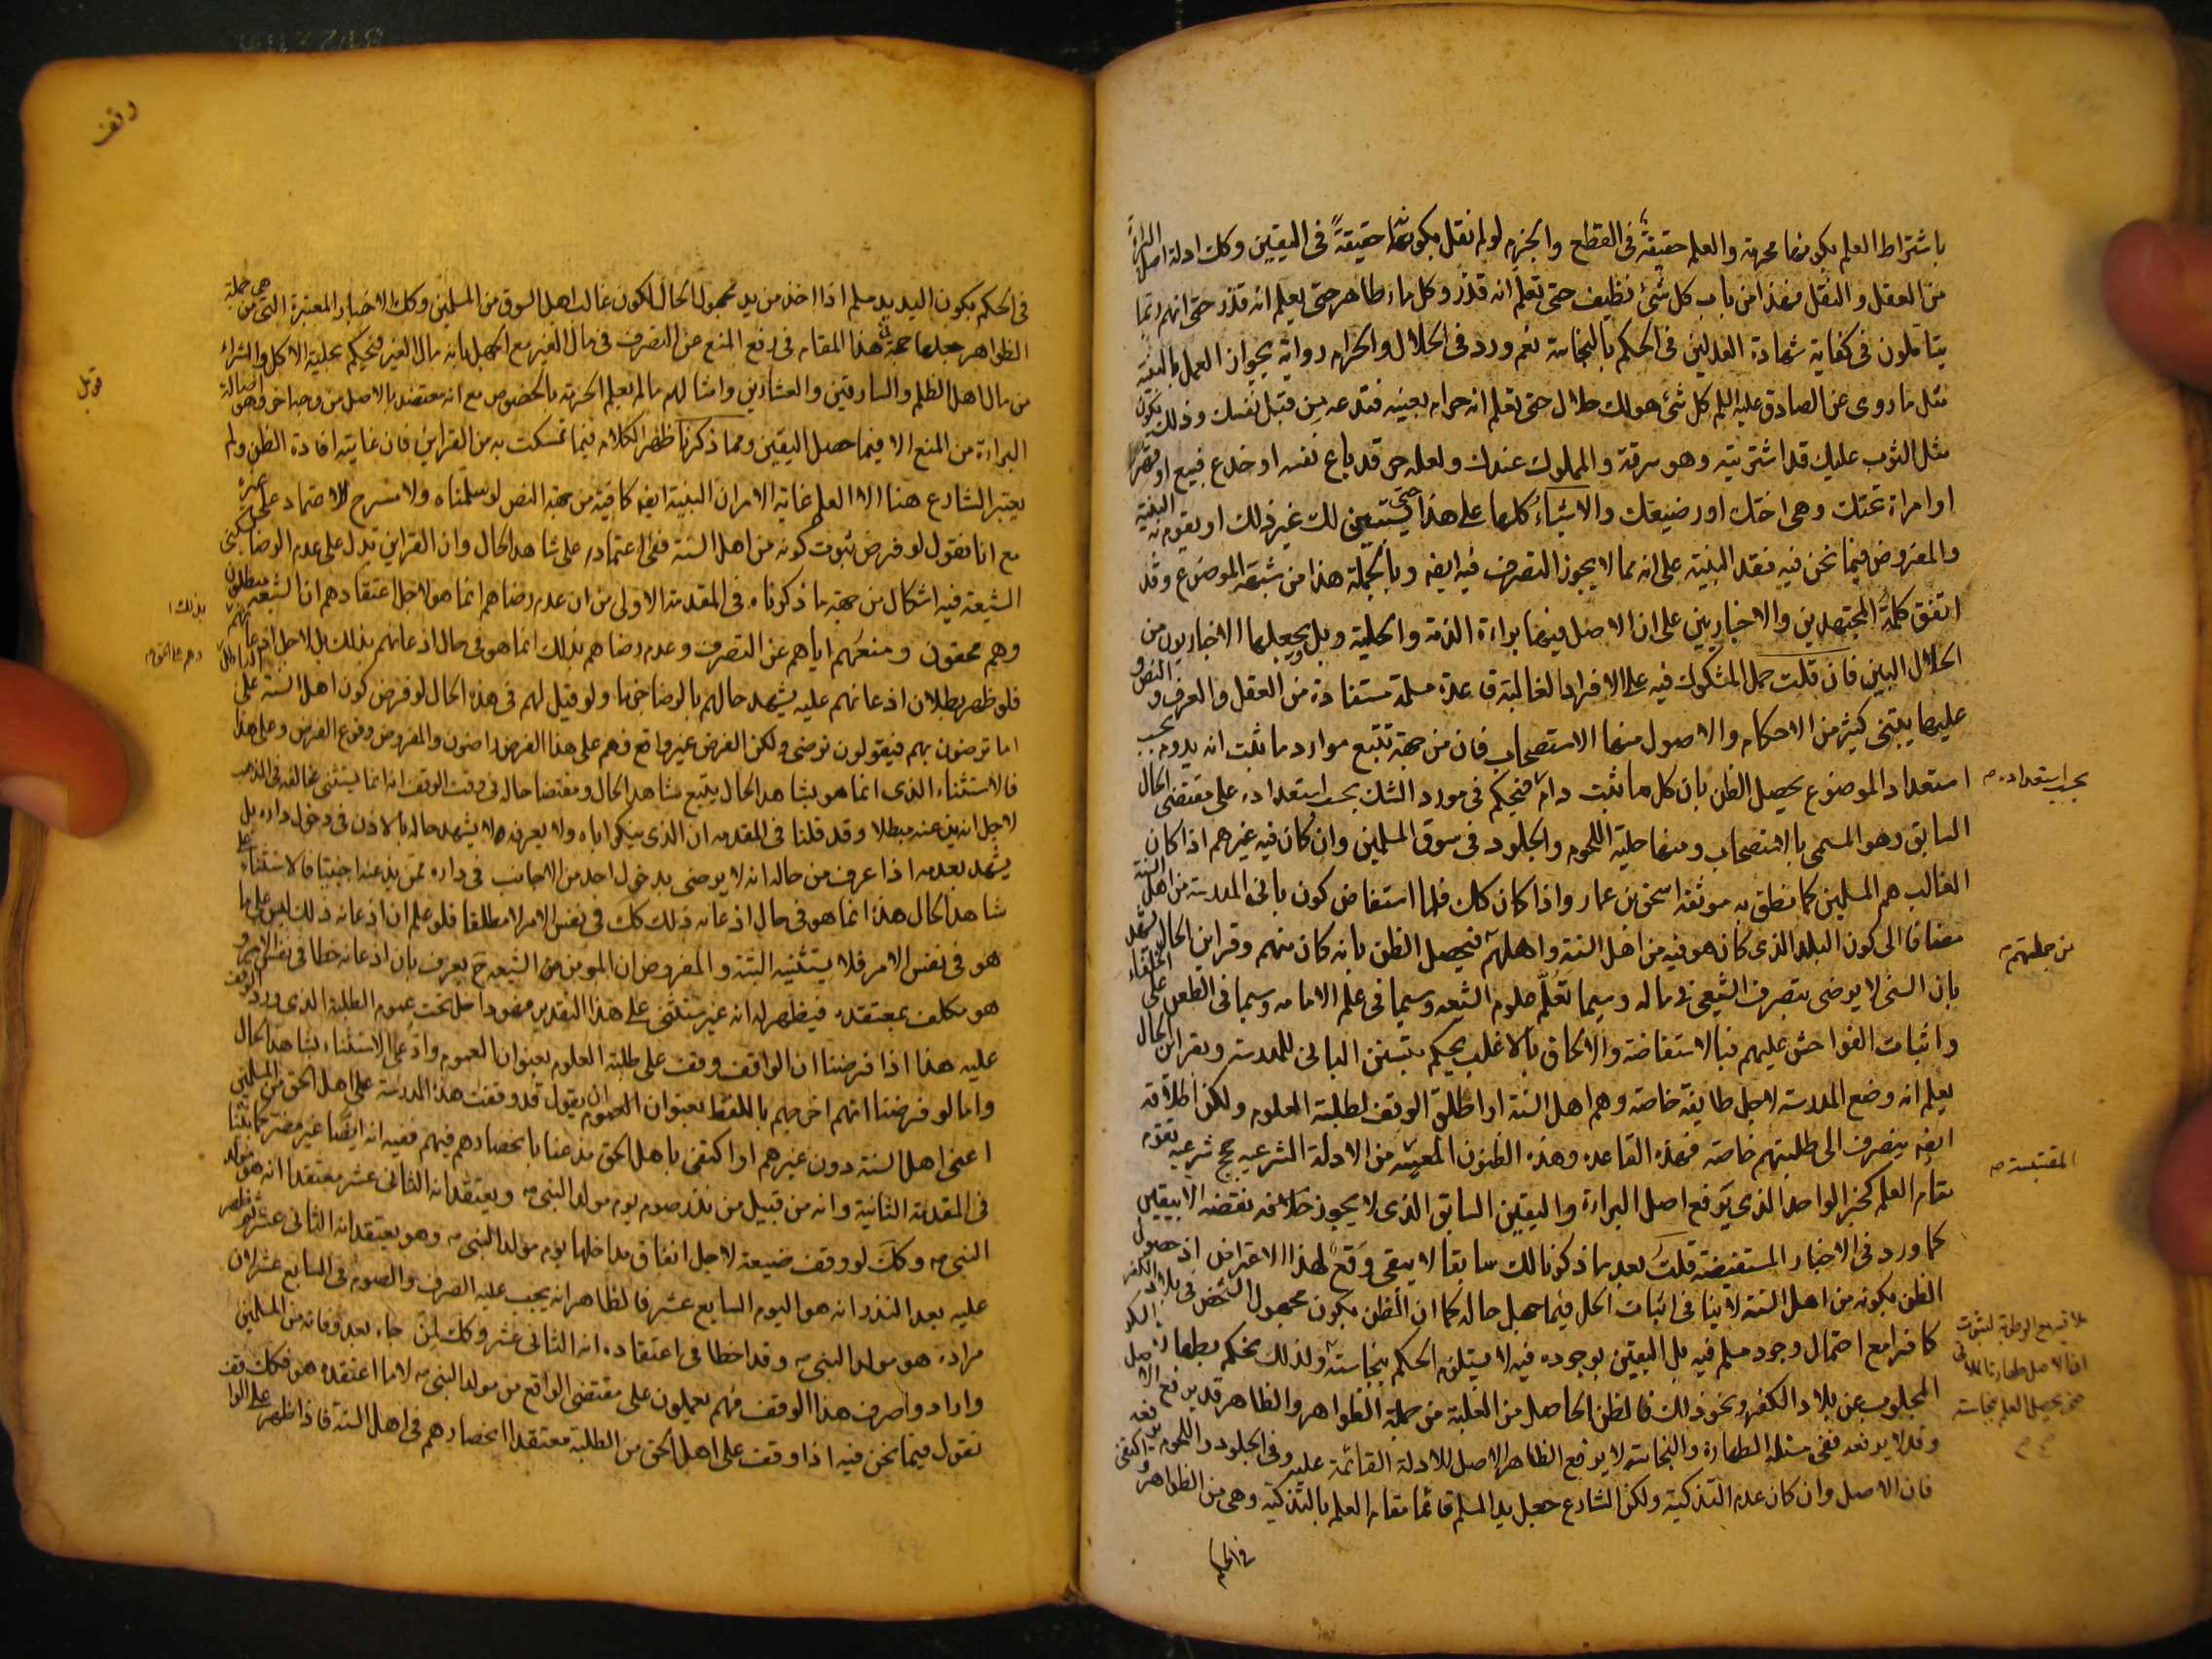 باشتراط العلم بكونها محرمة والعلم حقيقة في القطع والجزم لو لم نقل بكونها حقيقة في اليقين وكك ادلة اصل البراءة
من العقل والنقل فهذا من باب كل شئ نظيف حتى تعلم انه قذر وكل ماء طاهر حتى يعلم انه قذر حتى انهم ربما
يتاملون في كفاية شهادة العدلين في الحكم بالنجاسة نعم ورد في الحلال والحرام رواية بجواز العمل بالبينة
مثل ما روى عن الصادق عليه السلم كل شئ هو لك حلال حتى تعلم انه حرام بعينه فتدعه من قبل نفسك وذلك يكون
مثل الثوب عليك قد اشتريته وهو سرقة والمملوك عندك ولعله حر قد باع نفسه او خدع فبيع او قهر
او امراة تحتك وهي اختك او رضيعتك والاشياء كلها على هذا حتى يستبين لك غير ذلك او يقوم به البينة
والمفروض فيما نحن فيه فقد البينة على انه مما لا يجوز التصرف فيه ايضا وبالجملة هذا من شبهة الموضوع وقد
اتفق كلمة المجتهدين والاخباريين على ان الاصل فيها براءة الذمة والحلية وبل ويجعلها الاخباريون من
الحلال البين فان قلت حمل المشكوك فيه على الافراد الغالبة قاعدة مسلمة مستفادة من العقل والعرف والنص و
عليها يبتنى كثير من الاحكام والاصول منها الاستصحاب فان من جهة تتبع موارد ما ثبت انه يدوم بحسب
استعداد الموضوع يحصل الظن بان كل ما ثبت دام فيحكم في مورد الشك بحسب استعداده على مقتضى الحال
بحسب استعداده صح
السابق وهو المسمى بالاستصحاب ومنها حلية اللحوم والجلود في سوق المسلمين وان كان فيه غيرهم اذا كان
الغالب هم المسلمين كما نطق به موثقة اسحق بن عمار واذا كان كك فلما استفاض كون باني المدرسة من اهل السنة
مضافا الى كون البلد الذي كان هو فيه من اهل السنة واهلهم فيحصل الظن بانه كان منهم وقراين الحال تشهد
من جملتهم صح
بان السنى لا يرضى بتصرف الشيعى في ماله وسيما تعلم علوم الشيعه وسيما في علم الامامه وسيما في الطعن على الخلفاء
واثبات الفواحش عليهم فبالاستفاضة والالحاق بالاغلب يحكم بتسنن الباني للمدرسة وبقراين الحال
يعلم انه وضع المدرسة لاجل طايفة خاصة وهم اهل السنة او اطلق الوقف لطلبة العلوم ولكن اطلاقه
ايضا ينصرف الى طلبتهم خاصة فهذه القاعدة وهذه الظنون المعتبرة من الادلة الشرعيه حجج شرعيه تقوم
المقتبسة صح
مقام العلم كخبر الواحد الذي يرفع اصل البراءة واليقين السابق الذي لا يجوز خلافه نقضه الا بيقين
كما ورد في الاخبار المستفيضة قلت بعد ما ذكرنا لك سابقا لا يبقى وقع لهذا الاعتراض اذ حصول
الظن بكونه من اهل السنة لا ينافي اثبات الحل فيما جهل حاله كما ان الظن بكون مجهول الشخص في بلاد الكفر
كافرا مع احتمال وجود مسلم فيه بل اليقين بوجوده فيه لا يستلزم الحكم بنجاسته ولذلك نحكم بطهارة
ملاقيه مع الرطوبة لثبوت
ان الاصل طهارة الملاقي
حتى يحصل العلم بنجاسته
المجلوب عن بلاد الكفر ونحو ذلك فالظن الحاصل من الغلبة من جملة الظواهر والظاهر قد يرفع الاصل
وقد لا يرفعه ففى مسئلة الطهارة والنجاسة لا يرفع الظاهر الاصل للادلة القائمة عليه وفي الجلود واللحوم يرفعه
فان الاصل وان كان عدم التذكية ولكن الشارع جعل يد المسلم قائما مقام العلم بالتذكية وهي من الظواهر واكتفى
في الحكم
وقف
في الحكم بكون اليد يد مسلم اذا اخذ من يد مجهول الحال لكون غالب اهل السوق من المسلمين وكك الاخبار المعتبرة التي هي من جملة
الظواهر جعلها حجة في هذا المقام في رفع المنع عن التصرف في مال الغير مع الجهل بانه مال الغير فيحكم بحلية الاكل والشراء
من مال اهل الظلم والسارقين والعشارين وامثالهم ما لم يعلم الحرمة بالخصوص مع انه معتضد بالاصل من وجه اخر وهو اصالة
قوبل
البراءة من المنع الا فيما حصل اليقين ومما ذكرنا ظهر الكلام فيما تمسكت به من القراين فان غايته افادة الظن ولم
يعتبر الشارع هنا الا العلم غاية الامر ان البينة ايضا كافية من جهة النص لو سلمناه ولا مسرح للاعتماد على غيره
مع انا نقول لو فرض ثبوت كونه من اهل السنة ففى اعتماده على شاهد الحال وان القراين تدل على عدم الرضا بسكنى
الشيعة فيه اشكال من جهة ما ذكرناه في المقدمة الاولى من ان عدم رضاهم انما هو لاجل اعتقادهم ان الشيعة مبطلون
بذلك
وهم محقون ومنعهم اياهم عن التصرف وعدم رضاهم بذلك انما هو في حال اذعانهم بذلك بل لاجل اذعانهم
وهم على الحق صح
فلو ظهر بطلان اذعانهم عليه يشهد حالهم بالرضا جزما ولو قيل لهم في هذه الحال لو فرض كون اهل السنة على الباطل
اما ترضون بهم فيقولون نرضى ولكن الفرض غير واقع فهم على هذا الفرض راضون والمفروض وقوع الفرض وعلى هذا
فالاستثناء الذي انما هو بشاهد الحال يتبع شاهد الحال ومقتضا حاله في وقت الوقف انه انما يستثنى مخالفه في المذهب
لاجل انه يذعنه مبطلا وقد قلنا في المقدمه ان الذي ينكر اباه ولا يعرفه لا يشهد حاله بالاذن في دخول داره بل
يشهد بعدمه اذا عرف من حاله انه لا يرضى بدخول احد من الاجانب في داره ممن يذعنه اجنبيا فالاستثناء على
شاهد الحال هذا انما هو في حال اذعانه ذلك كك في نفس الامر لا مطلقا فلو علم ان اذعانه ذلك ليس على ما
هو في نفس الامر فلا يستثنيه البتة والمفروض ان المومن من الشيعه ح يعرف بان اذعانه خطا في نفس الامر و
هو مكلف بمعتقده فيظهر له انه غير مستثنى على هذا التقدير فهو داخل تحت عموم الطلبة الذي ورد الوقف
عليه هذا اذا فرضنا ان الواقف وقف على طلبة العلوم بعنوان العموم وادعى الاستثناء بشاهد الحال
واما لو فرضنا انهم اخرجهم باللفظ بعنوان العموم ان يقول قد وقفت هذا المدرسة على اهل الحق من المسلمين
اعنى اهل السنة دون غيرهم او اكتفى باهل الحق مذعنا بانحصارهم فيهم ففيه انه ايضا غير مضر كما بينا
في المقدمة الثانية وانه من قبيل من نذر صوم يوم مولد النبى ص ويعتقد انه الثاني عشر معتقدا انه هو مولد
النبى ص وكك لو وقف ضيعة لاجل انفاق مداخلها يوم مولد النبى ص وهو يعتقد انه الثاني عشر ثم ظهر
عليه بعد النذر انه هو اليوم السابع عشر فالظاهر انه يجب عليه الصرف والصوم في السابع عشر لان
مراده هو مولد النبى ص وقد اخطا في اعتقاده انه الثاني عشر وكك من جاء بعد وفاته من المسلمين
واراد واصرف هذا الوقف فهم يعملون على مقتضى الواقع من مولد النبى ص لا ما اعتقده هو فكك
نقول فيما نحن فيه اذا وقف على اهل الحق من الطلبة معتقدا انحصارهم في اهل السنة فاذا ظهر على